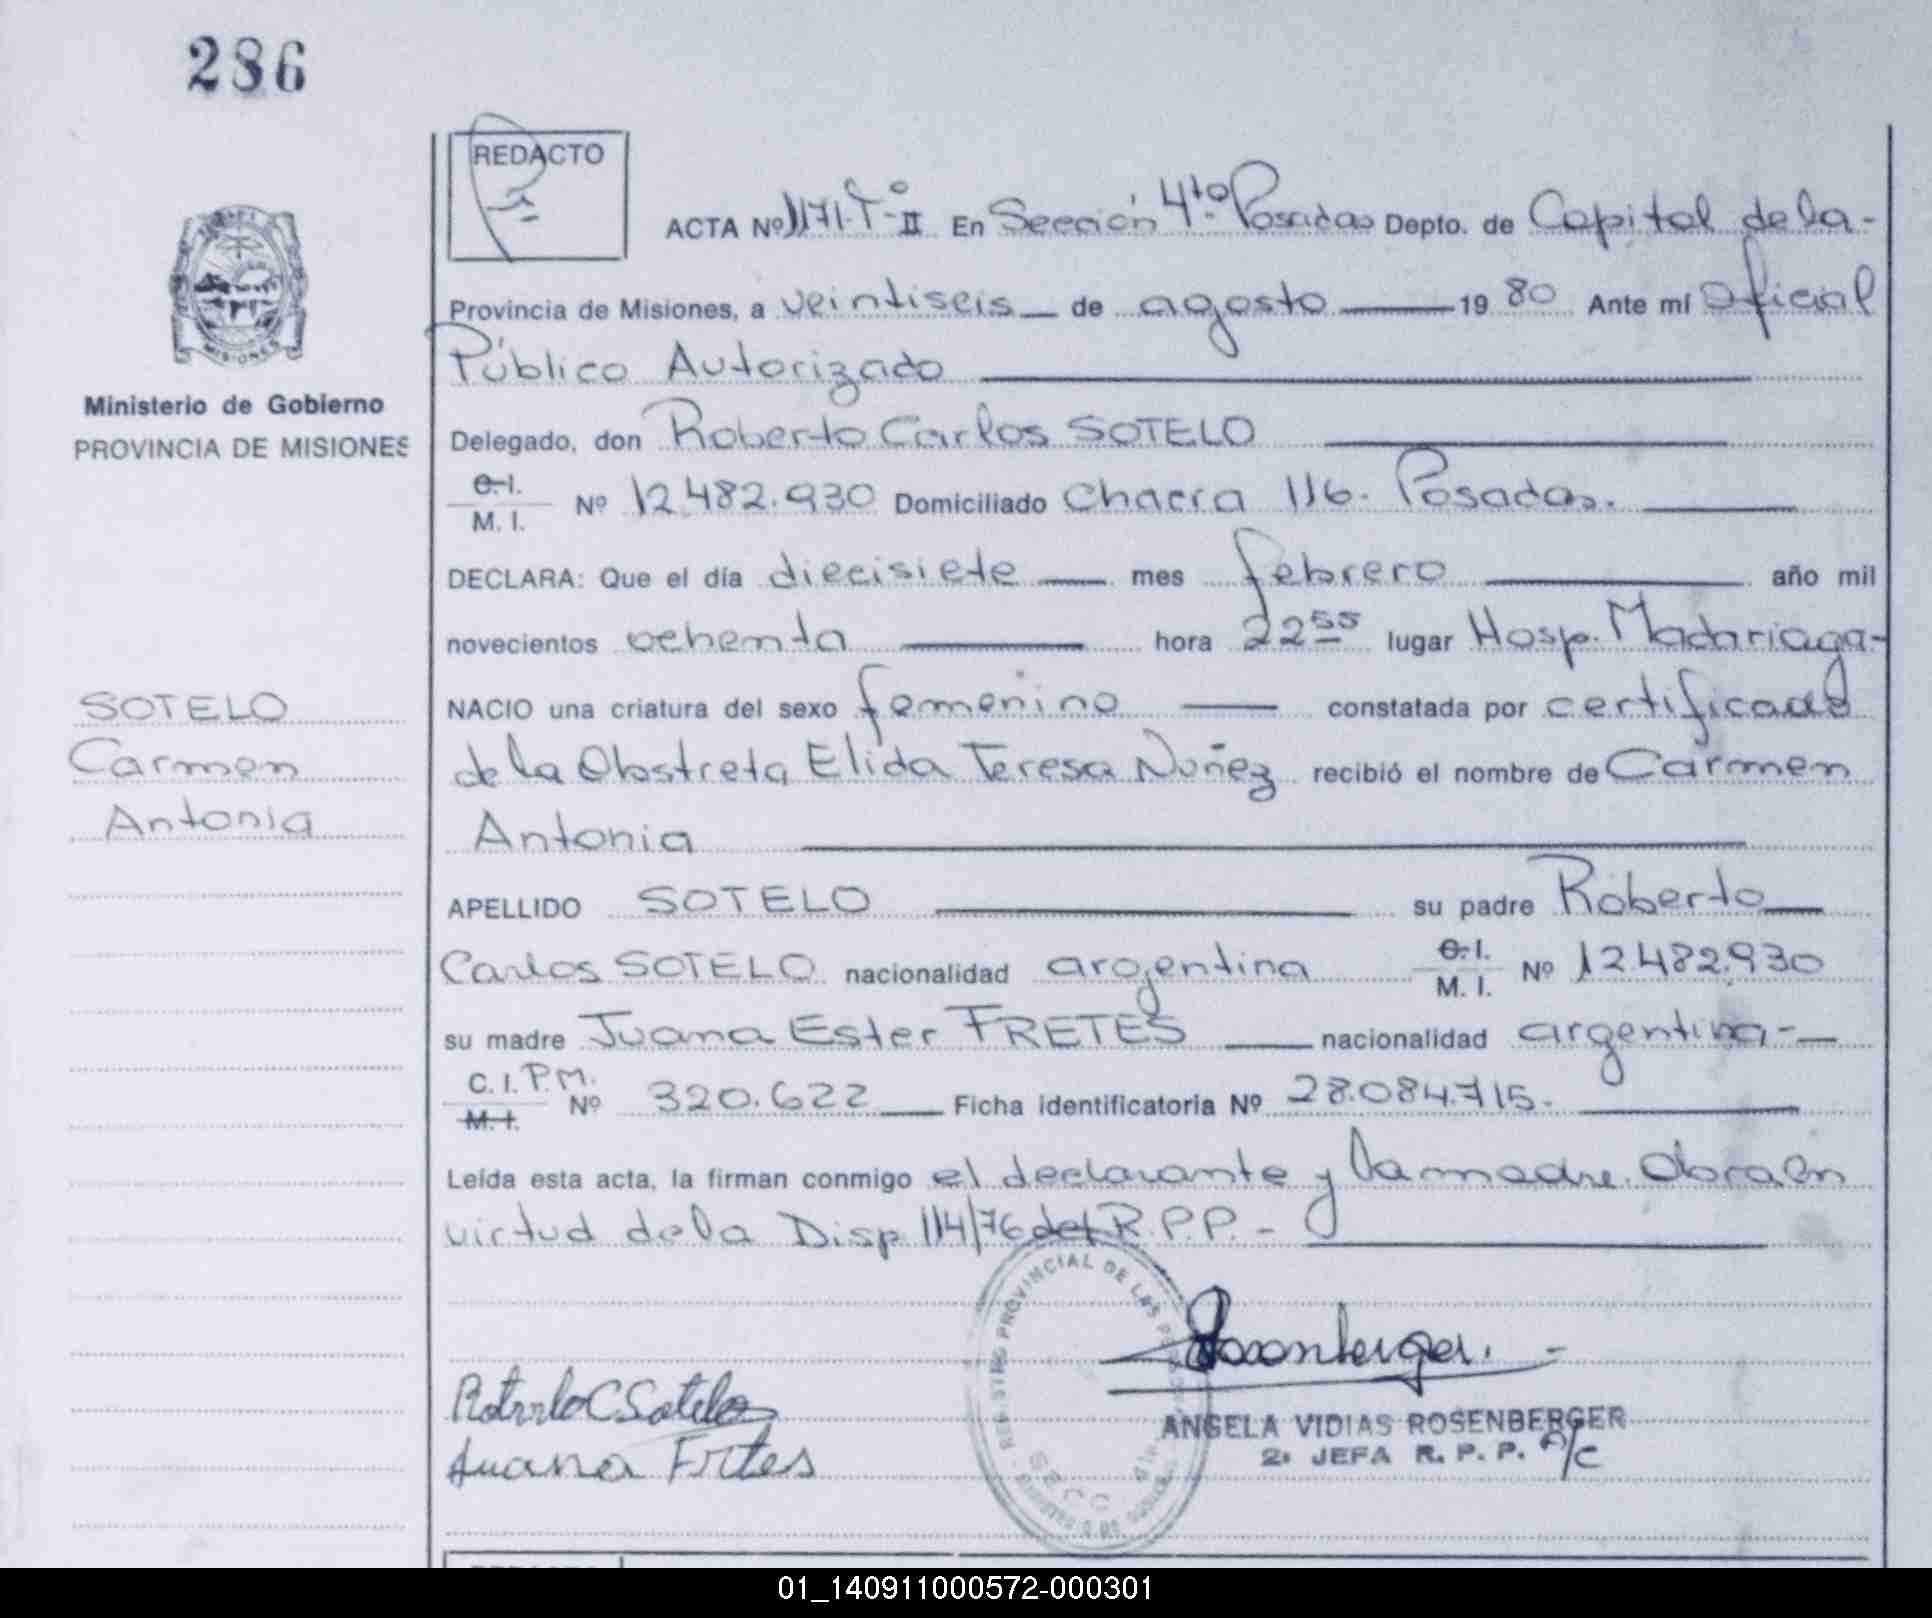 286
REDACTO
ACTA Nº 1171-Tº-II En Sección 4ta. Posadas Depto. de Capital de la-
MISIONES
Provincia de Misiones, a veintiseis de agosto 1980 Ante mí Oficial
Público Autorizado
Ministerio de Gobierno
PROVINCIA DE MISIONES
Delegado, don Roberto Carlos SOTELO
C.I. M.I. Nº 12.482.930 Domiciliado Chacra 116. Posadas.
DECLARA: Que el día diecisiete mes febrero año mil
novecientos ochenta hora 22 55 lugar Hosp. Madariaga-
SOTELO
Carmen
Antonia
NACIO una criatura del sexo femenino constatada por certificado
de la Obstreta Elida Teresa Nuñez recibió el nombre de Carmen
Antonia
APELLIDO SOTELO su padre Roberto
Carlos SOTELO nacionalidad argentina C.I. M.I. Nº 12.482.930
su madre Juana Ester FRETES nacionalidad argentina-
C.I.P.M. M.I. Nº 320.622 Ficha identificatoria Nº 28.084.715.
Leída esta acta, la firman conmigo el declarante y la madre. Obra en
virtud de la Disp 114/76 del R.P.P.-
REGISTRO PROVINCIAL DE LAS PERSONAS
SECC. 4ta
Rosenberger.
Roberto C Sotelo
Juana Frtes
ANGELA VIDIAS ROSENBERGER
2ª JEFA R. P. P. A/C
01_140911000572-000301